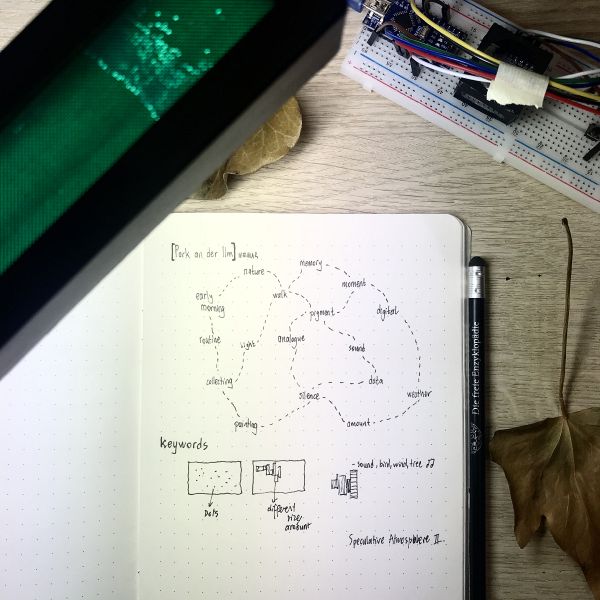 [Park an der Ilm] WEIMAR
memory
nature
moment
early
morning
walk
pigment
digital
routine
light
analogue
sound
collecting
data
silence
weather
painting
amount
keywords
- sound, bird, wind, tree
Dots
different
size
amount
Speculative Atmosphere II.
Die freie Enzyklopädie